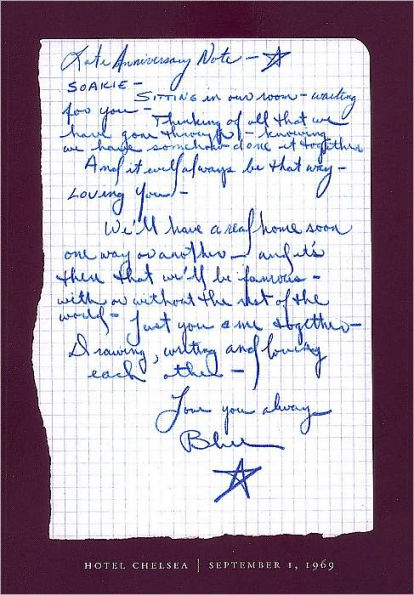 Late Anniversary Note - ☆
SOAKIE -
SITTING in our room - waiting
for you -
Thinking of all that we
have gone through - knowing
we have somehow done it together
And it will always be that way -
LOVING YOU -
We'll have a real home soon
one way or another - and it's
there that we'll be famous -
with or without the rest of the
world - Just you & me together -
Drawing, writing and loving
each other -
Love you always
Blue
☆
HOTEL CHELSEA | SEPTEMBER 1, 1969